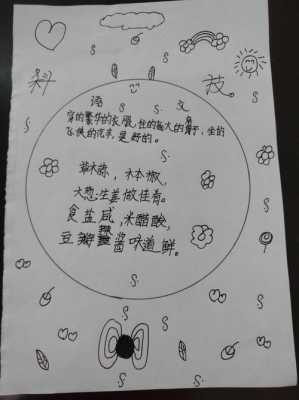 科 技
语 文
穿的繁华的衣服,住的大的房子,坐的
飞快的汽车,是的。
草木蒜,木本椒,
大葱生姜做佳肴。
食盐咸,米醋酸,
豆瓣酱味道鲜。